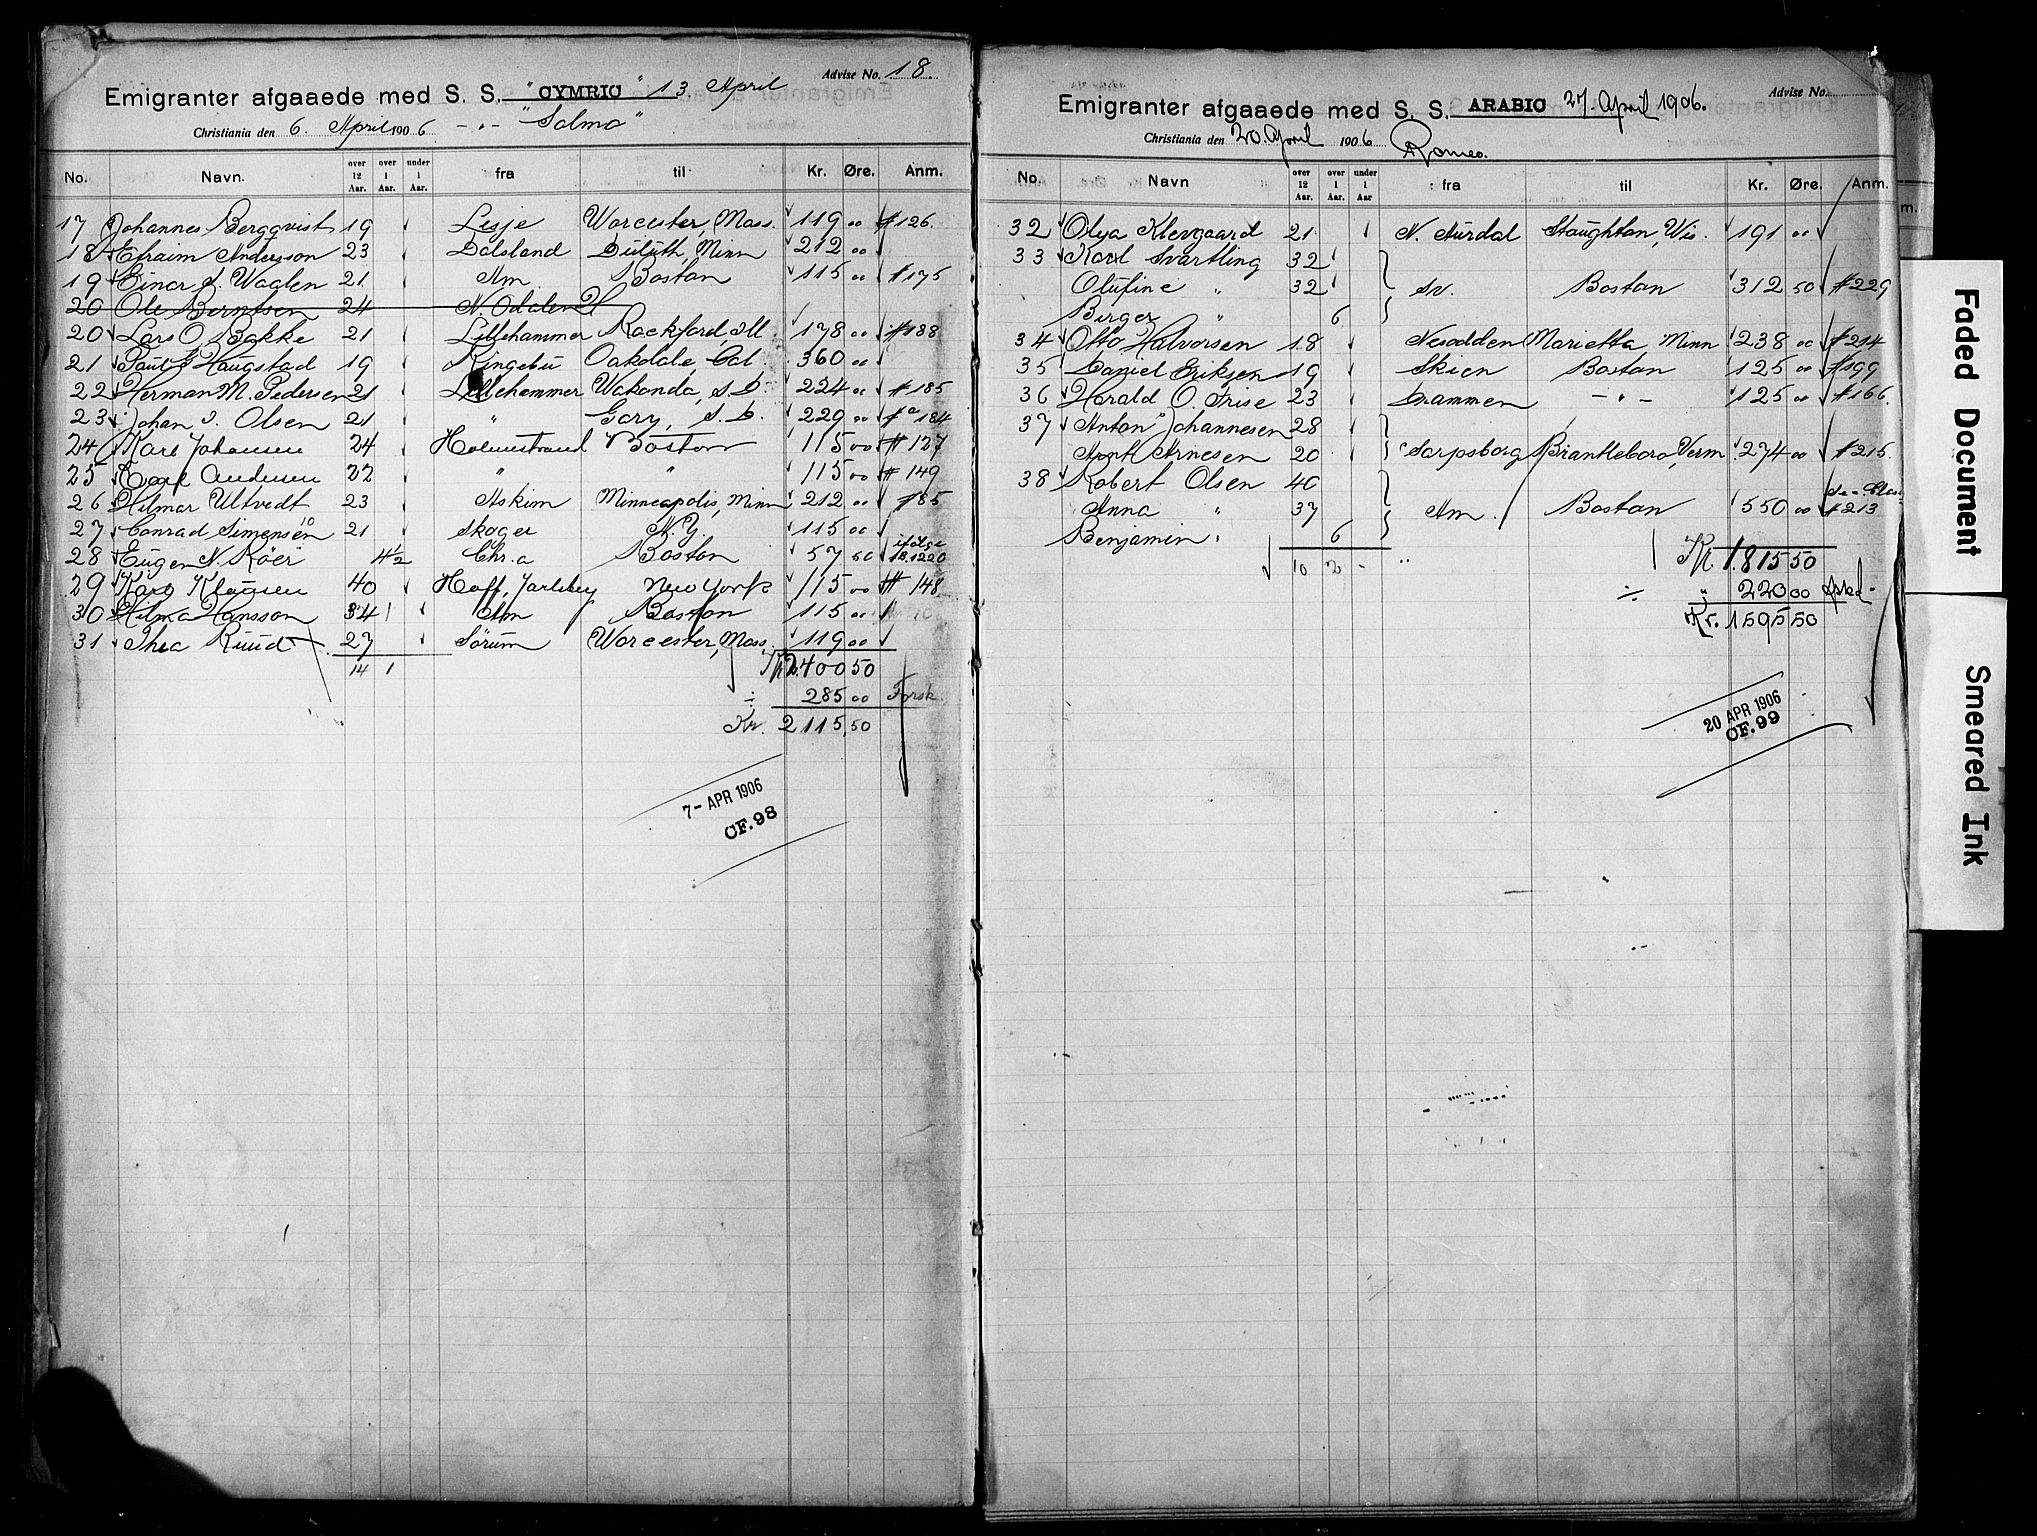 Advise No. 18.
Emigranter afgaaede med S. S. "CYMRIC" 13. April
Christiania den 6. April 1906 - " - "Salmo"
No. Navn. over 12 Aar. over 1 Aar. under 1 Aar. fra til Kr. Øre. Anm.
17 Johannes Bergqvist 19 Lesje Worcester, Mass. 119 00 # 126
18 Efraim Andersson 23 Dalsland Duluth, Minn 212 00
19 Einar Waalen 21 Am Boston 115 00 # 175
20 Ole Berntsen 24 N. Odalen
20 Lars O. Bakke 21 Lillehammer Rockford, Ill. 178 00 # 138
21 Paul Haugstad 19 Ringebu Oakdale, Cal. 360 00
22 Herman M. Pedersen 21 Lillehammer Wakonda, S. D. 224 00 # 185
23 Johan Olsen 21 " Gary, S. D. 229 00 # 184
24 Karl Johansen 24 Holmestrand Boston 115 00 # 127
25 Carl Andersen 22 " " 115 00 # 149
26 Hilmar Ultvedt 23 Askim Minneapolis, Minn 212 00 # 85
27 Conrad Simensen 21 Skoger N. Y. 115 00
28 Eugen N. Röer 4½ Chr.a Boston 57 50 ifølge 18.1220
29 Karo Klausen 40 Hoff, Jarlsberg New York 115 00 # 148
30 Hilma Hansson 34 Am Boston 115 00
31 Thea Ruud 27 Sørum Worcester, Mass. 119 00
14 1 Kr. 2400 50
÷ 285 00 Forsk.
Kr. 2115,50
7- APR 1906
CF. 98
Advise No.
Emigranter afgaaede med S. S. ARABIC 27. April 1906.
Christiania den 20. April 1906 Romeo.
No. Navn over 12 Aar. over 1 Aar. under 1 Aar fra til Kr. Øre. Anm.
32 Olga Klevgaard 21 N. Aurdal Stoughton, Wis. 191 00
33 Karl Svartling 32
Olufine " 32 Sv. Boston 312 50 # 229
Birger " 6
34 Otto Halvorsen 18 Nesodden Marietta Minn 238 00 # 214
35 Daniel Eriksen 19 Skien Boston 125 00 # 199
36 Harald O. Frise 23 Drammen - " - 125 00 # 166
37 Anton Johannesen 28
Arnt Arnesen 20 Sarpsborg Brattleboro, Verm 274 00 # 215
38 Robert Olsen 40
Anna " 37 Am. Boston 550 00 # 213
Benjamin " 6
10 2 - Kr. 1.815 50
÷ " 220 00 fskd.
Kr. 1595 50
20 APR 1906
CF. 99
Faded Document
Smeared Ink